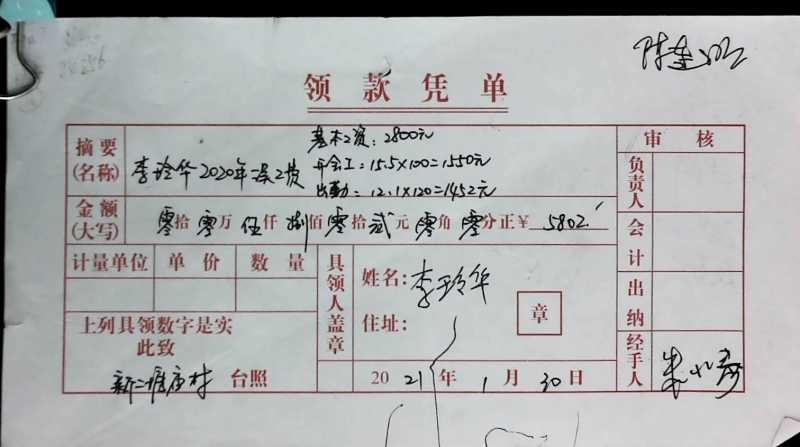 领款凭单
审核
摘要
(名称)
李玲华2020年误工资
基本工资：2800元
开会工：15.5×100=1550元
出勤：12.1×120=1452元
金额
(大写)
零拾零万伍仟捌佰零拾贰元零角零分正￥5802
计量单位 单价 数量
具领人盖章
姓名：李玲华
住址：
章
上列具领数字是实
此致
新二 村 台照
2021年1月30日
负责人
会计
出纳
经手人